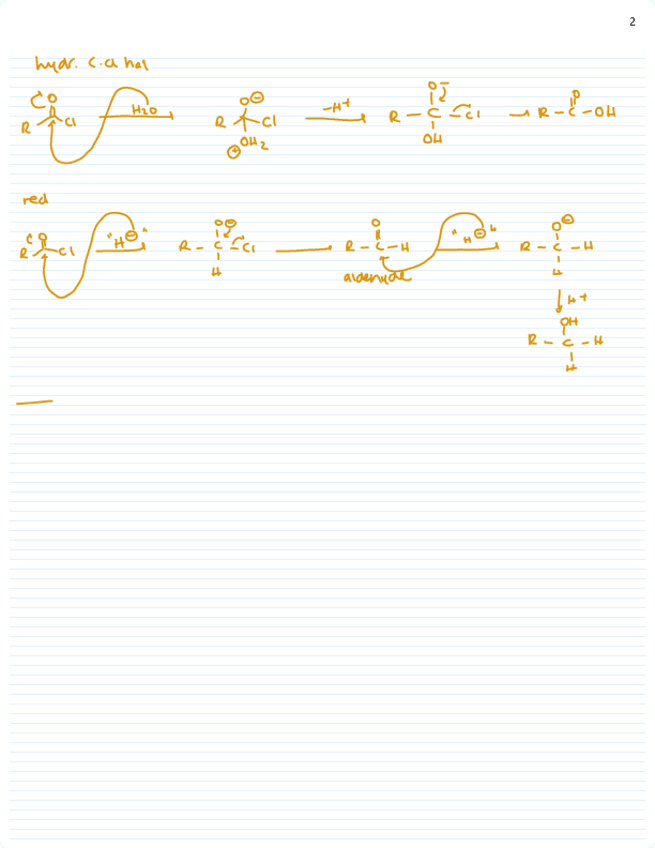 2
hydr. c.a hal
O O⊖ O⁻ O
R Cl H2O R Cl -H+ R - C - Cl R - C - OH
⊕ OH2 OH
red
O O⊖ O O⊖
R Cl "H⊖" R - C - Cl R - C - H "H⊖" R - C - H
H aldehyde H
H+
OH
R - C - H
H